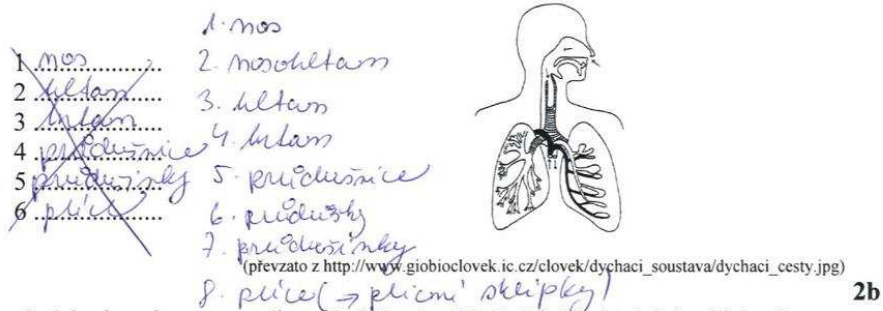 1 nos
2 hltan
3 hrtan
4 průdušnice
5 průdušinky
6 plíce
1. nos
2. nosohltan
3. hltan
4. hrtan
5. průdušnice
6. průdušky
7. průdušinky
8. plíce (→ plicní sklípky)
(převzato z http://www.giobioclovek.ic.cz/clovek/dychaci_soustava/dychaci_cesty.jpg)
2b